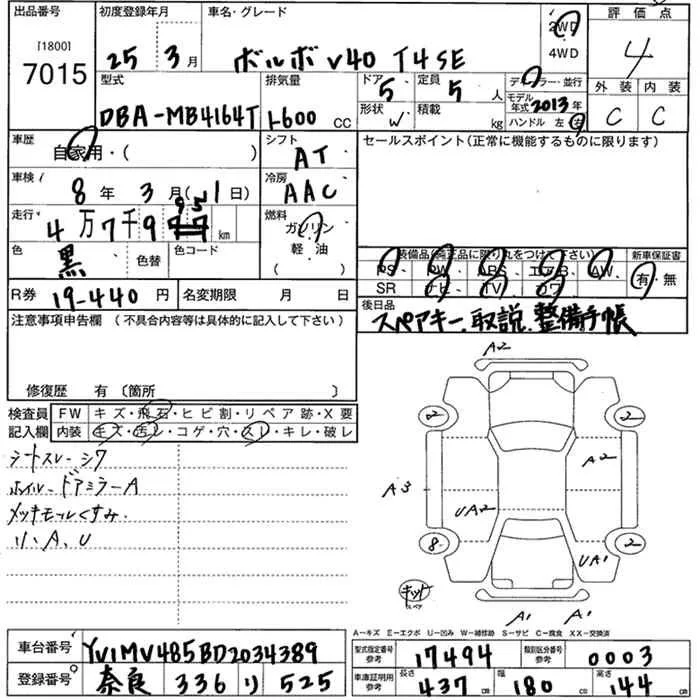 出品番号 初度登録年月 車名・グレード 評価点
[1800]
7015
25 3月 ボルボ V40 T4SE 2WD 4WD 4
型式 排気量 ドア 5 定員 5人 ディーラー・並行 外装 内装
DBA-MB4164T 1600 CC 形状 W 積載 kg モデル年式 2013年 C C
ハンドル 左 右
車歴 自家用・( ) シフト AT セールスポイント(正常に機能するものに限ります)
車検 8年 3月( 1日) 冷房 AAC
走行 4万7千9 km 95 燃料 ガソリン 軽・油
色 黒 色替 色コード
装備品(純正品に限り丸をつけて下さい) 新車保証書
PS、PW、ABS、エアB、AW、 有・無
SR ナビ、TV、カワ
R券 19-440円 名変期限 月 日 後日品
スペアキー、取説、整備手帳
注意事項申告欄 (不具合内容等は具体的に記入して下さい)
修復歴 有 〔箇所 〕
検査員 FW キズ・飛石・ヒビ割・リペア跡・X要
記入欄 内装 キズ・汚レ・コゲ・穴・スレ・キレ・破レ
シートスレ・シワ
ホイル・ドアミラーA
メッキモールくすみ.
リ:A、U
A2
2 2
A3 A2
UA2
8 2
UA1
キット
スペア
A1 A1
A-キズ E-エクボ U-凹み W-補修跡 S-サビ C-腐食 XX-交換済
車台番号 YV1MV485BD2034389
型式指定番号 参考 17494 類別区分番号 参考 0003
登録番号 奈良 336 り 525
車庫証明用 参考 長さ 437 cm 幅 180 cm 高さ 144 cm